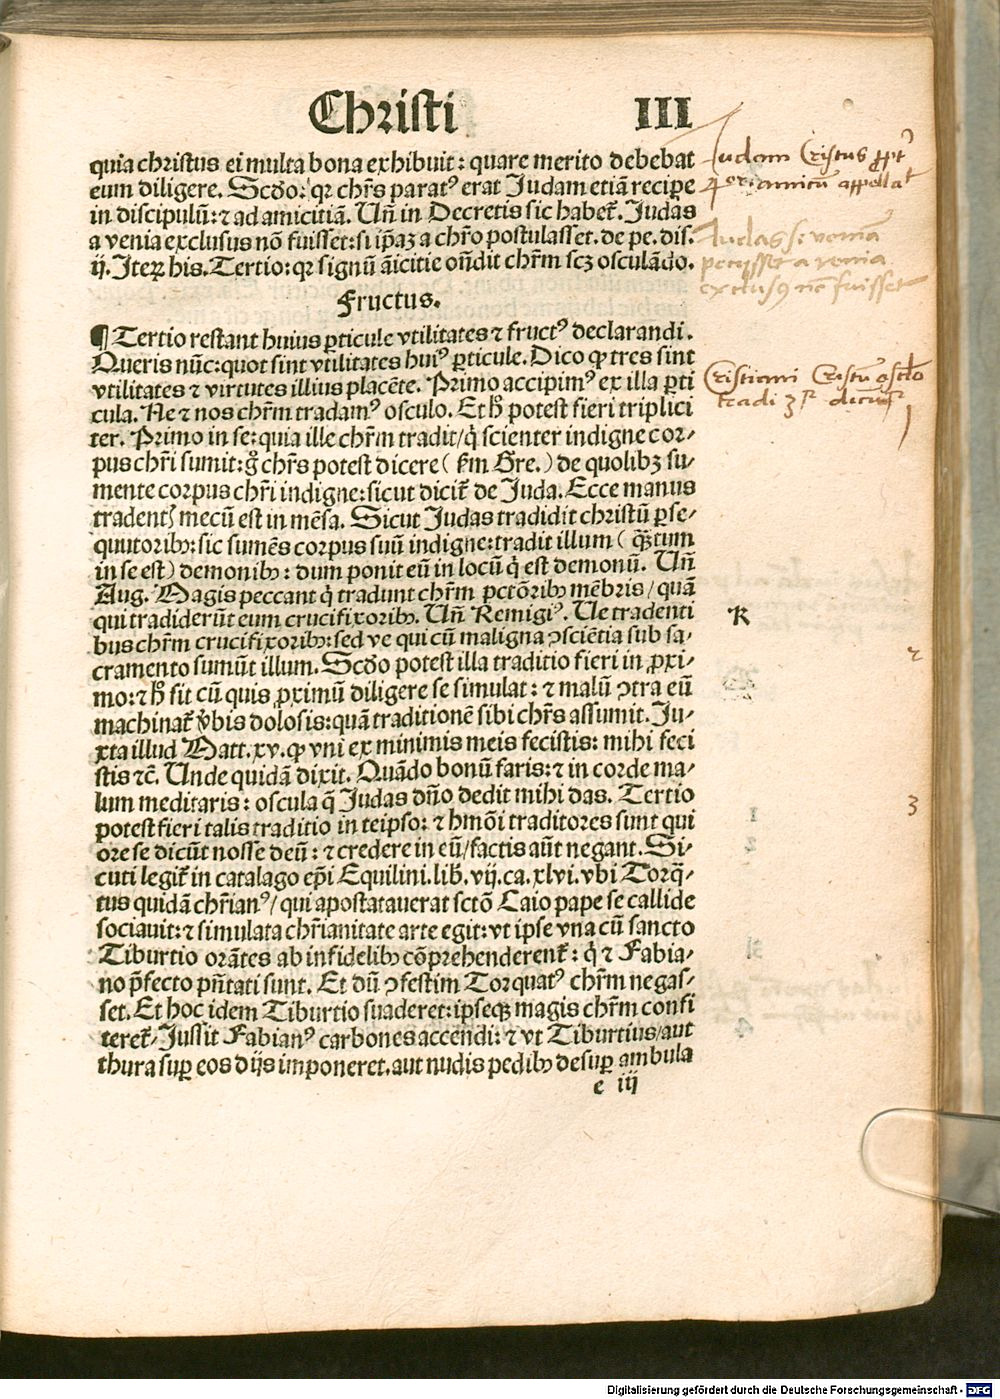 Christi III
quia christus ei multa bona exhibuit: quare merito debebat
eum diligere. Scd̄o: qꝛ chr̄s paratꝰ erat Judam etiā recipe
in discipulū: ⁊ ad amicitiā. Vñ in Decretis sic habet̄. Judas
a venia exclusus nō fuisset: si ip̄aꝫ a chr̄o postulasset. de pe. dis.
ij. Iteꝝ his. Tertio: qꝛ signū aīcitie on̄dit chr̄m scꝫ osculādo.
Fructus.
¶ Tertio restant huius ꝑticule vtilitates ⁊ fructꝰ declarandi.
Queris nūc: quot sint vtilitates huiꝰ ꝑticule. Dico ꝙ tres sint
vtilitates ⁊ virtutes illius placēte. Primo accipimꝰ ex illa ꝑti
cula. Ne ⁊ nos chr̄m tradamꝰ osculo. Et h̄ potest fieri triplici
ter. Primo in se: quia ille chr̄m tradit/ q̇ scienter indigne cor⸗
pus chr̄i sumit: g̊ chr̄s potest dicere ( s̄m Gre. ) de quolibꝫ su⸗
mente corpus chr̄i indigne: sicut dicit̄ de Juda. Ecce manus
tradentꝭ mecū est in mēsa. Sicut Judas tradidit christū ꝑse⸗
quutoribꝰ: sic sumēs corpus suū indigne: tradit illum ( q̄ꝫtum
in se est ) demonibꝰ: dum ponit eū in locū q̇ est demonū. Vñ
Aug. Magis peccant q̇ tradunt chr̄m pctōribꝰ mēbris/ quā
qui tradiderūt eum crucifixoribꝰ. Vñ Remigiꝰ. Ve tradenti
bus chr̄m crucifixoribꝰ: sed ve qui cū maligna ꝯsciētia sub sa⸗
cramento sumūt illum. Scd̄o potest illa traditio fieri in ꝓxi⸗
mo: ⁊ h̄ sit cū quis ꝓximū diligere se simulat: ⁊ malū ꝯtra eū
machinat̄ v̄bis dolosis: quā traditionē sibi chr̄s assumit. Ju⸗
xta illud Matt. xv. ꝙ vni ex minimis meis fecistis: mihi feci
stis ⁊c̄. Unde quidā dixit. Quādo bonū faris: ⁊ in corde ma⸗
lum meditaris: oscula q̄ Judas dn̄o dedit mihi das. Tertio
potest fieri talis traditio in teipso: ⁊ hmōi traditores sunt qui
ore se dicūt nosse deū: ⁊ credere in eū/ factis aūt negant. Si⸗
cuti legit̄ in catalago ep̄i Equilini. lib. vij. ca. xlvi. vbi Torq̄⸗
tus quidā chr̄ianꝰ/ qui apostatauerat sctō Caio pape se callide
sociauit: ⁊ simulata chr̄ianitate arte egit: vt ipse vna cū sancto
Tiburtio orātes ab infidelibꝰ cōprehenderent̄: q̇ ⁊ Fabia⸗
no p̄fecto pn̄tati sunt. Et dū ꝯfestim Torquatꝰ chr̄m negas⸗
set. Et hoc idem Tiburtio suaderet: ipseqꝫ magis chr̄m confi
teret̄. Jussit Fabianꝰ carbones accendi: ⁊ vt Tiburtius/ aut
thura suꝑ eos dijs imponeret. aut nudis pedibꝰ desuꝑ ambula
e iij
Judam Cristus ꝓpt
amicū appellat
Judas si veniā
petijsset a venia
exclusꝰ nō fuisset
Cristiani Cristū osclo
tradi 3r dicūtur
1
K
2
3
Digitalisierung gefördert durch die Deutsche Forschungsgemeinschaft - DFG